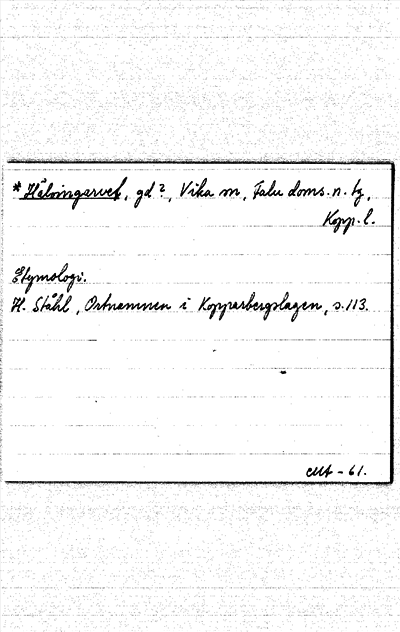 * Hälvingarvet, gd ?, Vika sn, Falu doms. n. tg,
Kopp. l.
Etymologi.
H. Ståhl, Ortnamnen i Kopparbergslagen, s. 113.
-61.